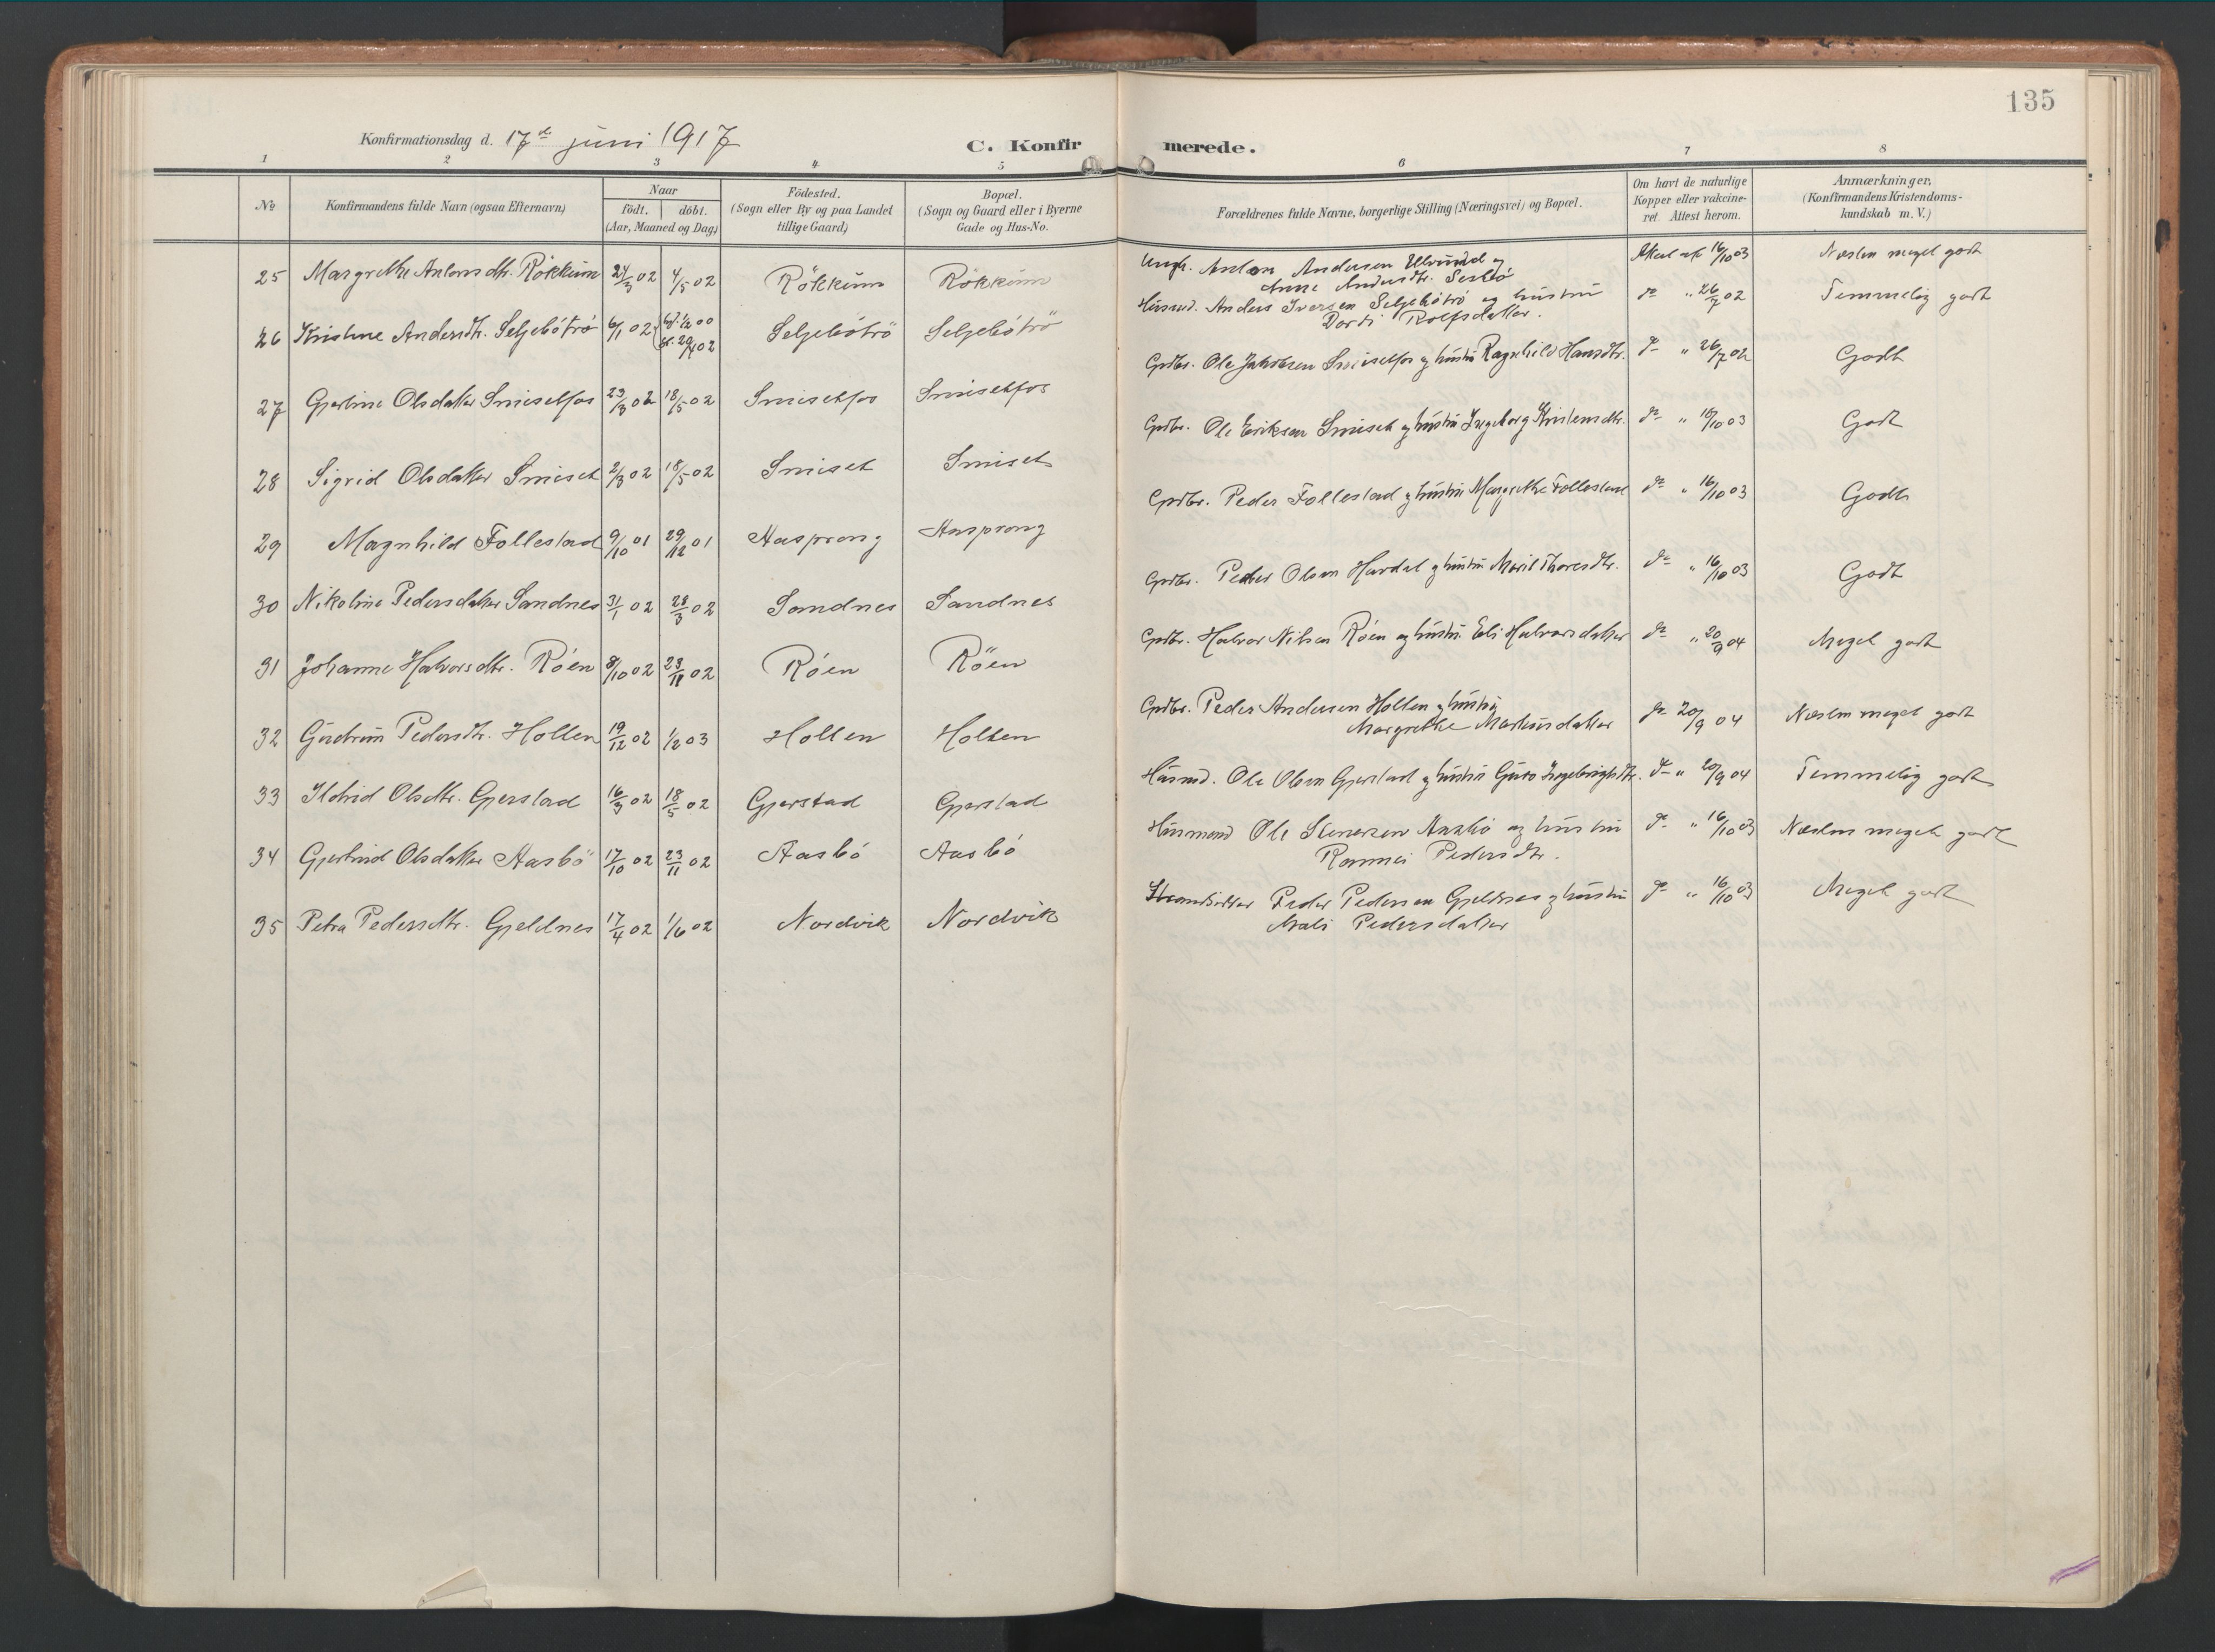 135
Konfirmationsdag d. 17de juni 1917
C. Konfirmerede.
1 2 3 4 5 6 7 8
No
Konfirmandens fulde Navn (ogsaa Efternavn)
Naar
födt. döbt.
(Aar, Maaned og Dag)
Födested.
(Sogn eller By og paa Landet
tillige Gaard)
Bopæl.
(Sogn og Gaard eller i Byerne
Gade og Hus-No.
Forældrenes fulde Navne, borgerlige Stilling (Næringsvei) og Bopæl.
Om havt de naturlige
Kopper eller vakcine-
ret. Attest herom.
Anmærkninger,
(Konfirmandens Kristendoms-
kundskab m. V.)
25 Margrethe Antonsdtr. Rökkum 24/3 02 4/5 02 Rökkum Rökkum Ungk. Anton Andersen Ulvund og Attest af 16/10 03 Næsten meget godt
Anne Andersdtr. Sesbö
26 Kristine Andersdtr. Seljebötrö 6/1 02 Seljebötrö Seljebötrö Husmd. Anders Iversen Seljebötrö og hustru do " 26/7 02 Temmelig godt
29/4 02 Dordi Rolfsdatter.
27 Gjertine Olsdatter Smisetfos 23/3 02 18/5 02 Smisetfos Smisetfos Grdbr. Ole Jakobsen Smisetfos og hustru Ragnhild Hansdtr. do " 26/7 02 Godt
28 Sigrid Olsdatter Smiset 2/3 02 18/5 02 Smiset Smiset Grdbr. Ole Eriksen Smiset og hustru Ingeborg Kristensdtr. do " 16/10 03 Godt
29 Magnhild Follestad 9/10 01 29/12 01 Aasprong Aasprong Grdbr. Peder Follestad og hustru Margrethe Follestad do " 16/10 03 Godt
30 Nikoline Pedersdatter Sandnes 31/1 02 28/3 02 Sandnes Sandnes Grdbr. Peder Olsen Hardal og hustru Marit Thoresdtr. do " 16/10 03 Godt
31 Johanne Halvorsdtr. Röen 8/10 02 23/11 02 Röen Röen Grdbr. Halvor Nilsen Röen og hustru Eli Halvorsdatter do " 20/9 04 Meget godt
32 Gudrun Pedersdtr. Holten 19/12 02 1/2 03 Holten Holten Grdbr. Peder Andersen Holten og hustru do 20/9 04 Næsten meget godt
Margrethe Markusdatter
33 Ildrid Olsdtr. Gjerstad 16/3 02 18/5 02 Gjerstad Gjerstad Husmd. Ole Olsen Gjerstad og hustru Guro Ingebrigtsdtr. do " 20/9 04 Temmelig godt
34 Gjertrud Olsdatter Aasbö 17/10 02 23/11 02 Aasbö Aasbö Husmand Ole Stenersen Aasbö og hustru do " 16/10 03 Næsten meget godt
Rannei Pedersdtr.
35 Petra Pedersdtr. Gjeldnes 17/4 02 1/6 02 Nordvik Nordvik Strandsidder Peder Pedersen Gjeldnes og hustru do " 16/10 03 Meget godt
Mali Pedersdatter